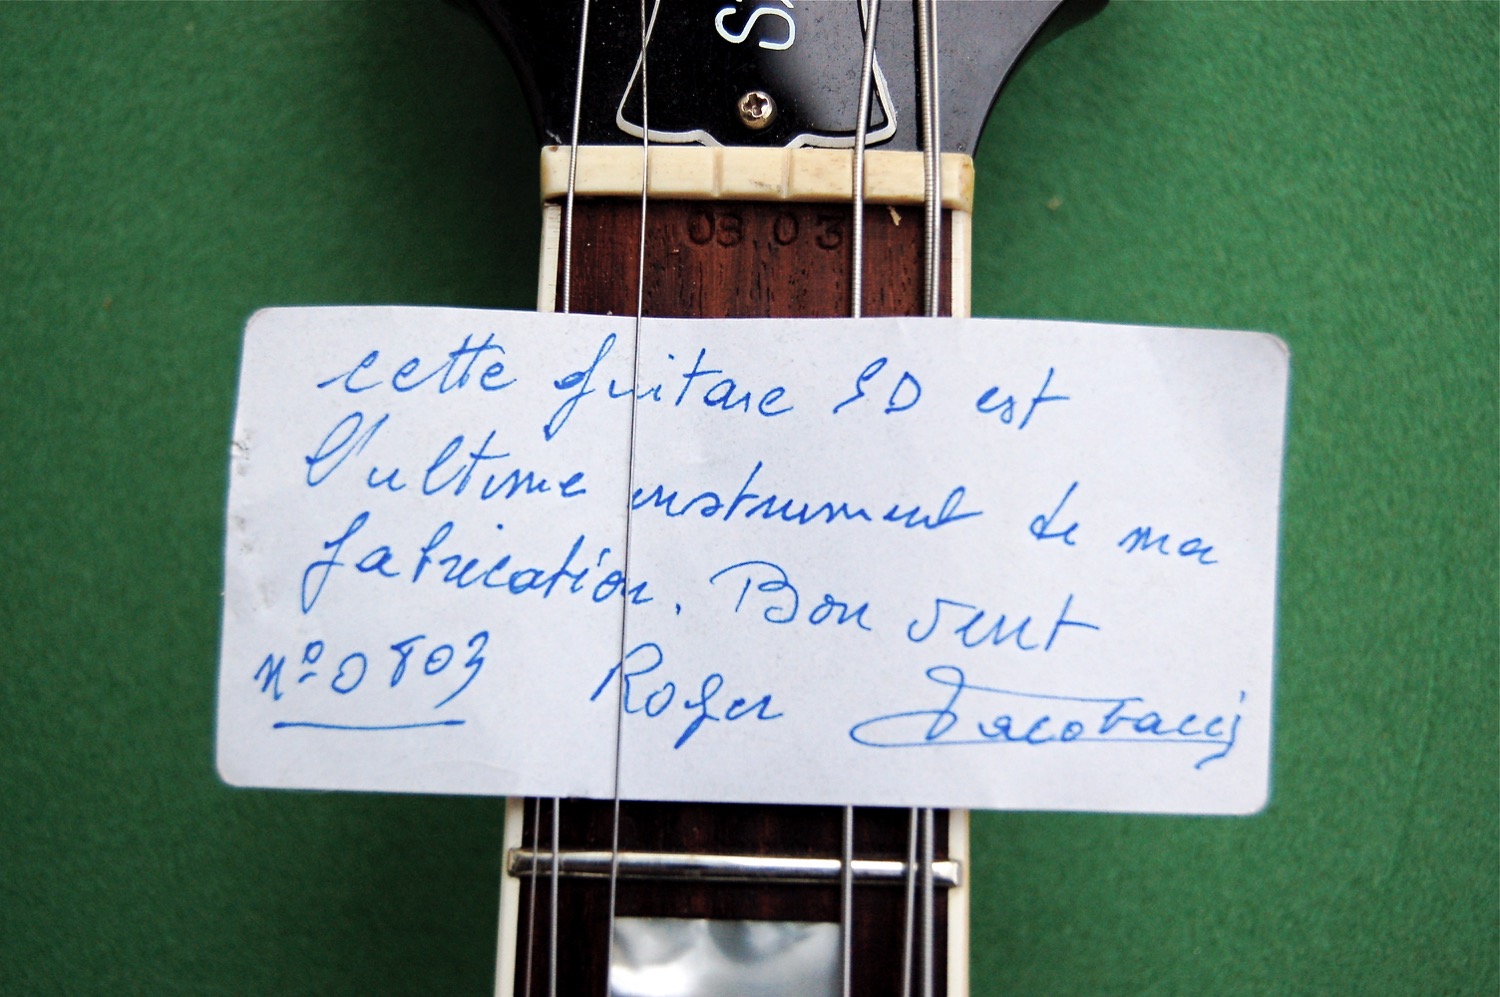 0803
cette guitare SD est
l'ultime instrument de ma
fabrication. Bon vent
nº 0803 Roger Jacobacci